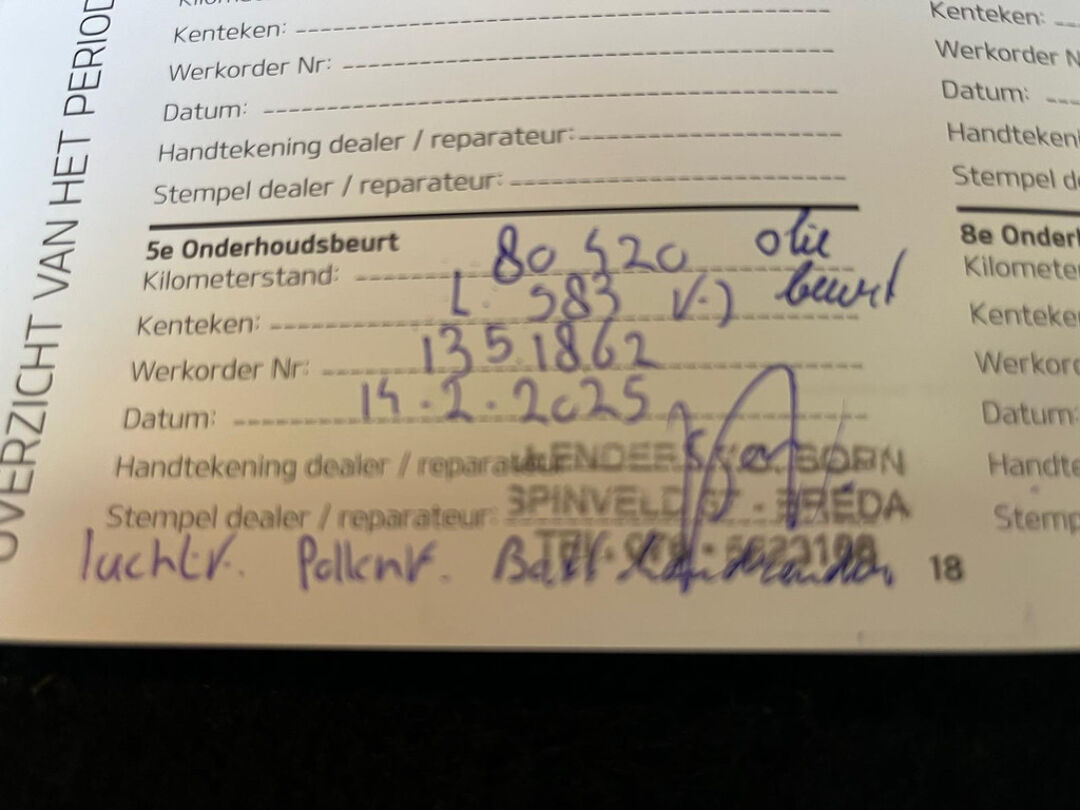 OVERZICHT VAN HET PERIOD
Kenteken:
Werkorder Nr:
Datum:
Handtekening dealer / reparateur:
Stempel dealer / reparateur:
5e Onderhoudsbeurt
Kilometerstand: 80 420 olie
beurt
Kenteken: L. 983 V.)
Werkorder Nr: 1351862
Datum: 14.2.2025
Handtekening dealer / reparateur
Stempel dealer / reparateur: SPINVELD BREDA
luchtr. Pollenr. Batt
18
Kenteken:
Werkorder N
Datum:
Handteken
Stempel de
8e Onder
Kilometer
Kenteken
Werkord
Datum
Handte
Stemp